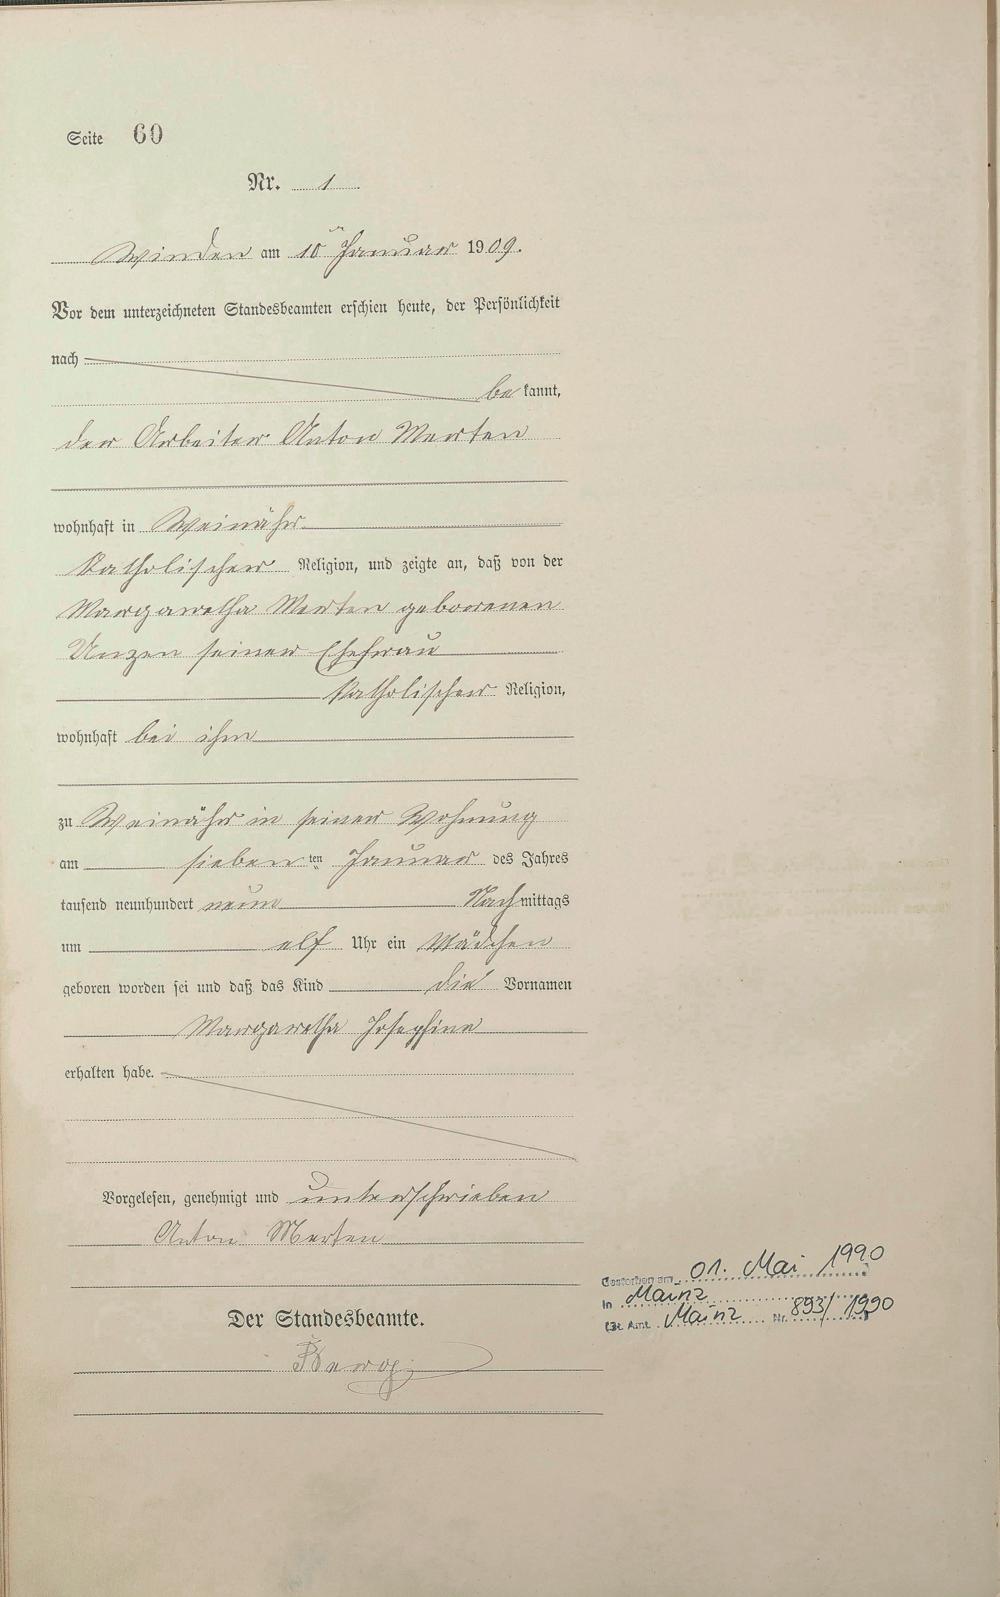 Seite 60
Nr. 1
Winden am 10ten Januar 1909.
Vor dem unterzeichneten Standesbeamten erschien heute, der Persönlichkeit
nach
bekannt,
der Arbeiter Anton Merten
wohnhaft in Weinähr
katholischer Religion, und zeigte an, daß von der
Margaretha Merten geborenen
seiner Ehefrau
katholischer Religion,
wohnhaft bei ihm
zu Weinähr in seiner Wohnung
am sieben ten Januar des Jahres
tausend neunhundert neun Nachmittags
um elf Uhr ein Mädchen
geboren worden sei und daß das Kind die Vornamen
Margaretha Josephine
erhalten habe.
Vorgelesen, genehmigt und unterschrieben
Anton Merten
Gestorben am 01. Mai 1990
in Mainz
(St. Amt. Mainz Nr. 893/1990)
Der Standesbeamte.